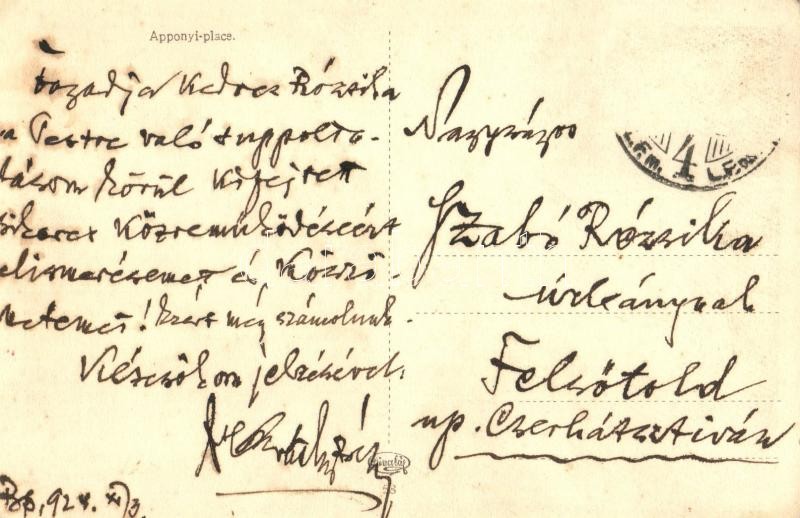 Apponyi-place.
Fogadja Kedves Rózsika
a Pestre való
körül kifejtett
sikeres közreműködéséért
elismerésemet és köszö-
netemet! Ezért még számolunk
Kézcsókom jelzésével
Bp, 924. XI/3.
Nagyságos
Szabó Rózsika
úrleánynak
Felsőtold
up. Cserhátszentiván
4
L.F.m.